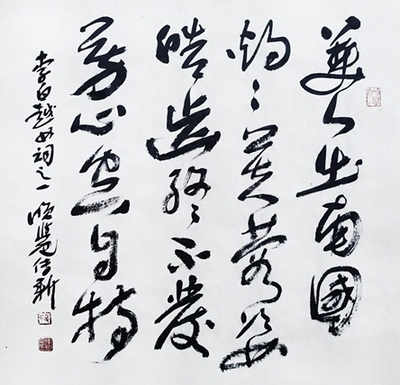 美人出南國
灼灼芙蓉姿
皓齒終不發
芳心空自持
李白越女詞之一